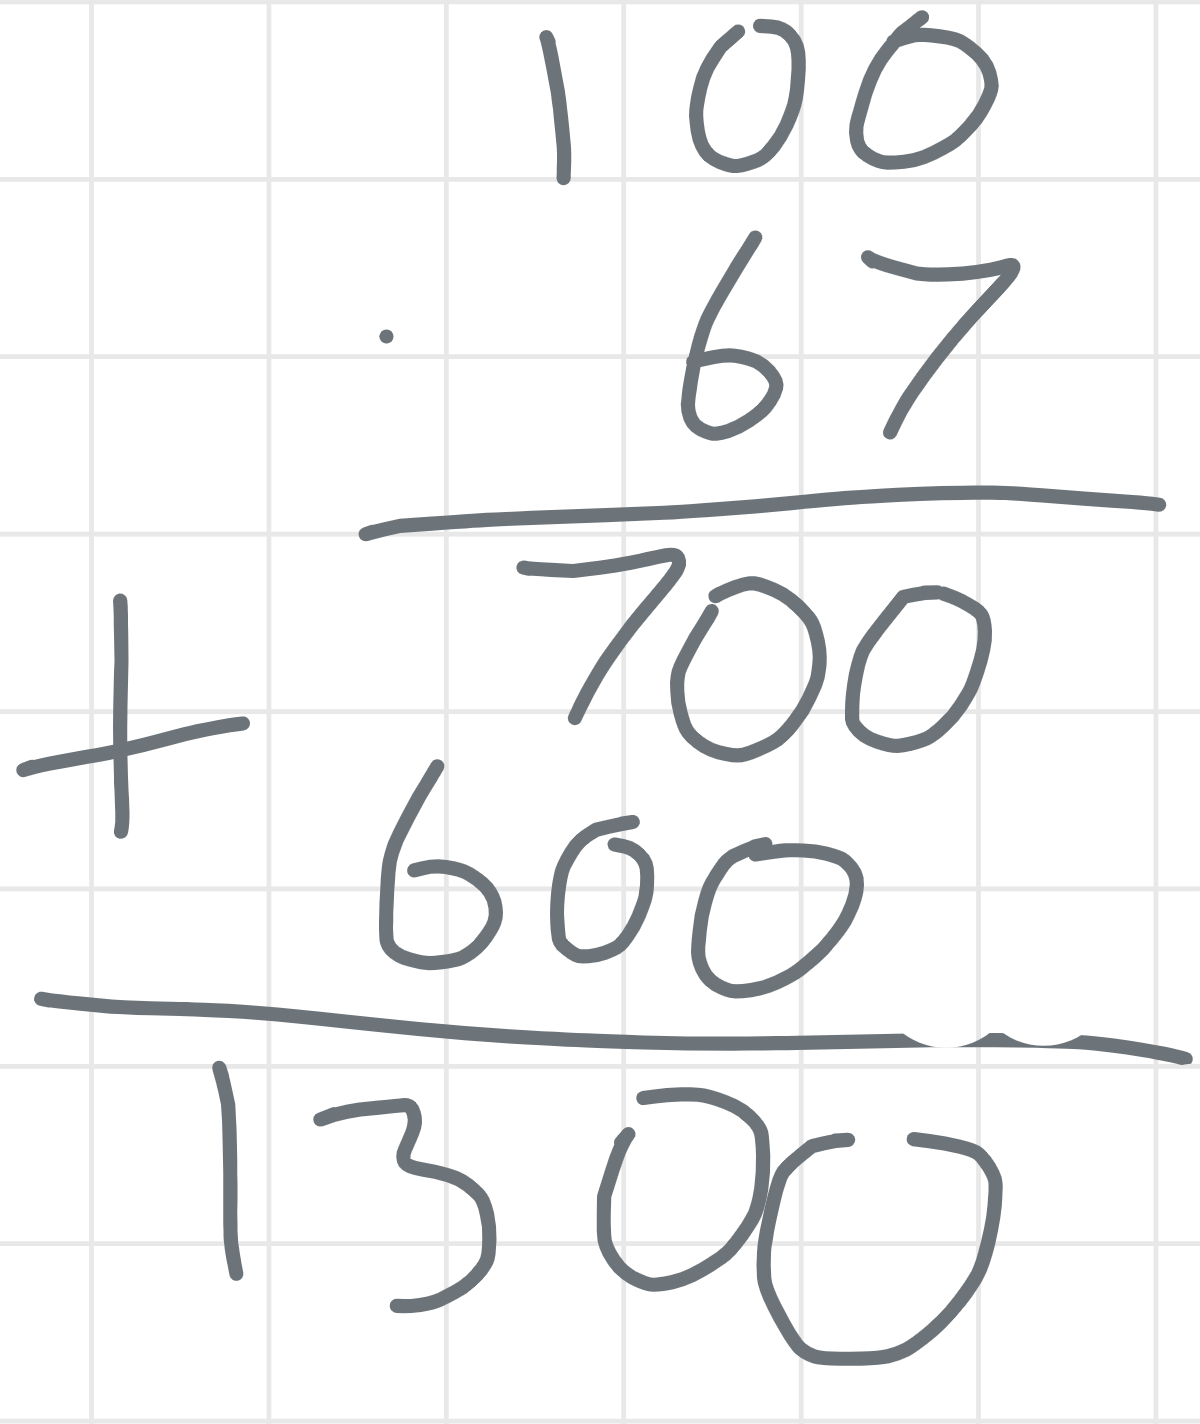 100
· 67
700
+
600
1300